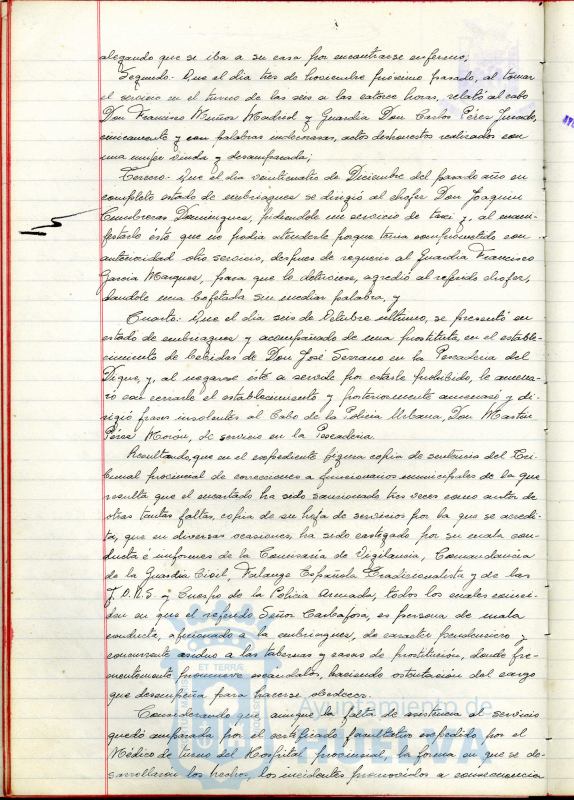 alegando que se iba a su casa por encontrarse enfermo;
Segundo.- Que el dia tres de noviembre próximo pasado, al tomar
el servicio en el turno de las seis a las catorce horas, relató al cabo
Don Francisco Muñoz Madrid y Guardia Don Carlos Pérez Jurado,
cinicamente y con palabras indecorosas, actos deshonestos realizados con
una mujer viuda y desamparada;
Tercero.- Que el dia veinticuatro de Diciembre del pasado año en
completo estado de embriaguez se dirigió al chofer Don Joaquin
Cumbreras Dominguez, pidiendole un servicio de taxi y, al mani-
festarle éste que no podia atenderle porque tenia comprometido con
anterioridad otro servicio, despues de requerir al Guardia Francisco
Garcia Marquez, para que lo detuviese, agredió al referido chofer,
dandole una bofetada sin mediar palabra, y
Cuarto.- Que el dia seis de Octubre ultimo, se presentó en
estado de embriaguez y acompañado de una prostituta, en el estable-
cimiento de bebidas de Don José Serrano en la Pescaderia del
Dique, y, al negarse éste a servirle por estarle prohibido, le amena-
zó con cerrarle el establecimiento y posteriormente amenazó y di-
rigió frases insolentes al Cabo de la Policia Urbana, Don Martin
Pérez Morón, de servicio en la Pescaderia.
Resultando, que en el expediente figura copia de sentencia del Tri-
bunal provincial de correcciones a funcionarios municipales de la que
resulta que el encartado ha sido sancionado tres veces como autor de
otras tantas faltas, copia de su hoja de servicios por la que se acredi-
ta, que en diversas ocasiones, ha sido castigado por su mala con-
ducta é informes de la Comisaria de Vigilancia, Comandancia
de la Guardia Civil, Falange Española Tradicionalista y de las
J.O.N.S. y Cuerpo de la Policia Armada, todos los cuales coinci-
den en que el referido Señor Carbafosa, es persona de mala
conducta, aficionado a la embriaguez, de caracter pendenciero y
concurrente asiduo a las tabernas y casas de prostitución, donde fre-
cuentemente promueve escandalos, haciendo ostentación del cargo
que desempeña para hacerse obedecer.
Considerando que aunque la falta de asistencia al servicio
quedó amparada por el certificado facultativo expedido por el
Médico de turno del Hospital provincial, la forma en que se de-
sarrollaron los hechos, los incidentes promovidos a consecuencia
ET TERRÆ
Ayuntamiento de
HUELVA